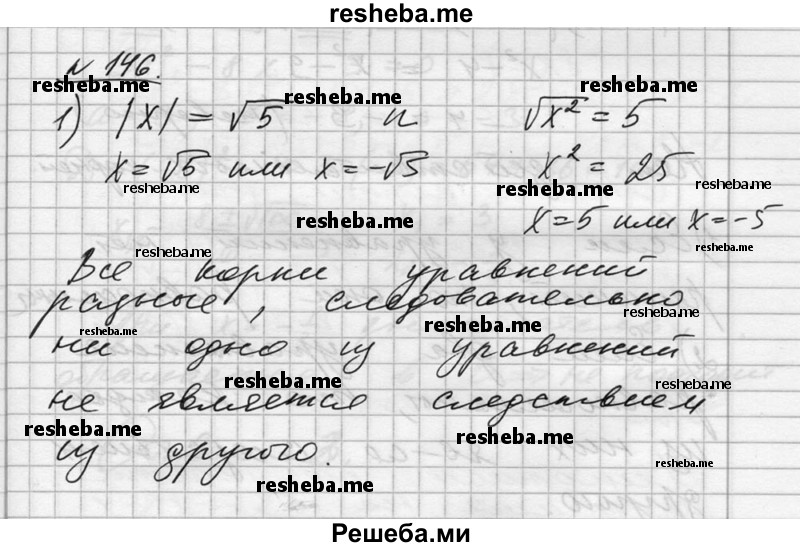 resheba.me
№ 146.
resheba.me resheba.me resheba.me
1) |x| = √5 и √x² = 5
x = √5 или x = -√5 x² = 25
resheba.me resheba.me resheba.me
resheba.me x = 5 или x = -5
resheba.me resheba.me
Все корни уравнений
разные, следовательно
resheba.me resheba.me resheba.me
ни одно из уравнений
resheba.me resheba.me
не является следствием
resheba.me resheba.me
из другого.
resheba.me resheba.me
Решеба.ми